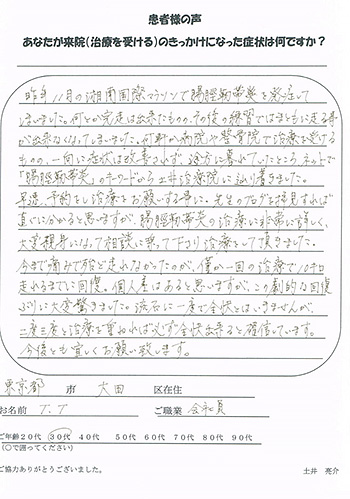 患者様の声
あなたが来院(治療を受ける)のきっかけになった症状は何ですか?
昨年11月の湘南国際マラソンで腸脛靭帯炎を発症して
しまいました。何とか完走は出来たものの、その後の練習ではまともに走る事
が出来なくなってしまいました。何軒か病院や整骨院で治療を受ける
ものの、一向に症状は改善されず、途方に暮れていたところ、ネットで
「腸脛靭帯炎」のキーワードから土井治療院に辿り着きました。
早速、予約をし治療をお願いする事に。先生のブログを拝見すれば
直ぐに分かると思いますが、腸脛靭帯炎の治療に非常に詳しく、
大変親身になって相談に乗って下さり治療をして頂きました。
今まで痛みで殆ど走れなかったのが、僅か一回の治療で10キロ
走れるまでに回復。個人差はあると思いますが、この劇的な回復
ぶりに大変驚きました。流石に一度で全快とはいきませんが、
二度三度と治療を重ねれば必ず全快出来ると確信しています。
今後とも宜しくお願い致します。
東京都 市 大田 区在住
お名前 T.T ご職業 会社員
ご年齢 20代 30代 40代 50代 60代 70代 80代 90代
(○で囲ってください)
ご協力ありがとうございました。 土井 亮介